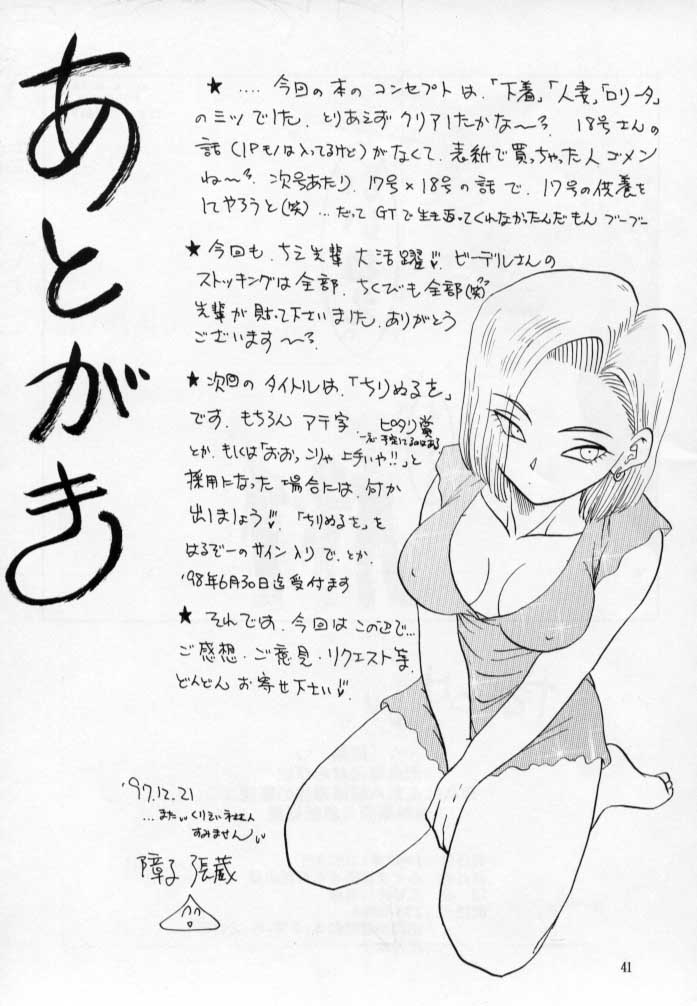 あとがき
★ .... 今回の本の コンセプト は、「下着」、「人妻」、「ロリータ」
の ミッツ でした. とりあえず クリアしたかな〜?. 18号さんの
話 (1Pモノは入ってるけど) がなくて、表紙で買っちゃった人 ゴメン
ね〜?. 次号あたり、17号×18号の話 で、17号の供養を
してやろうと(笑) ... だって GTで生き返ってくれなかったんだもん ブーブー
★ 今回も、ちえ先輩 大活躍. ビーデルさんの
ストッキングは 全部、ちくびも 全部(笑)
先輩が 貼って下さいました. ありがとう
ございます 〜?.
★ 次回の タイトルは、「ちりぬるを」
です. もちろん アテ字. ピタリ賞
一応 予定してるのはある
とか、もしくは「おおっ こりゃ 上手いや!!」と
採用になった 場合には、何か
出しましょう. 「ちりぬるを」を
はるぞーの サイン入り で、とか.
'98年6月30日迄受付ます
★ それでは、今回は この辺で...
ご感想・ご意見・リクエスト等、
どんどん お寄せ下さい.
'97.12.21
すみません
障子 張蔵
41